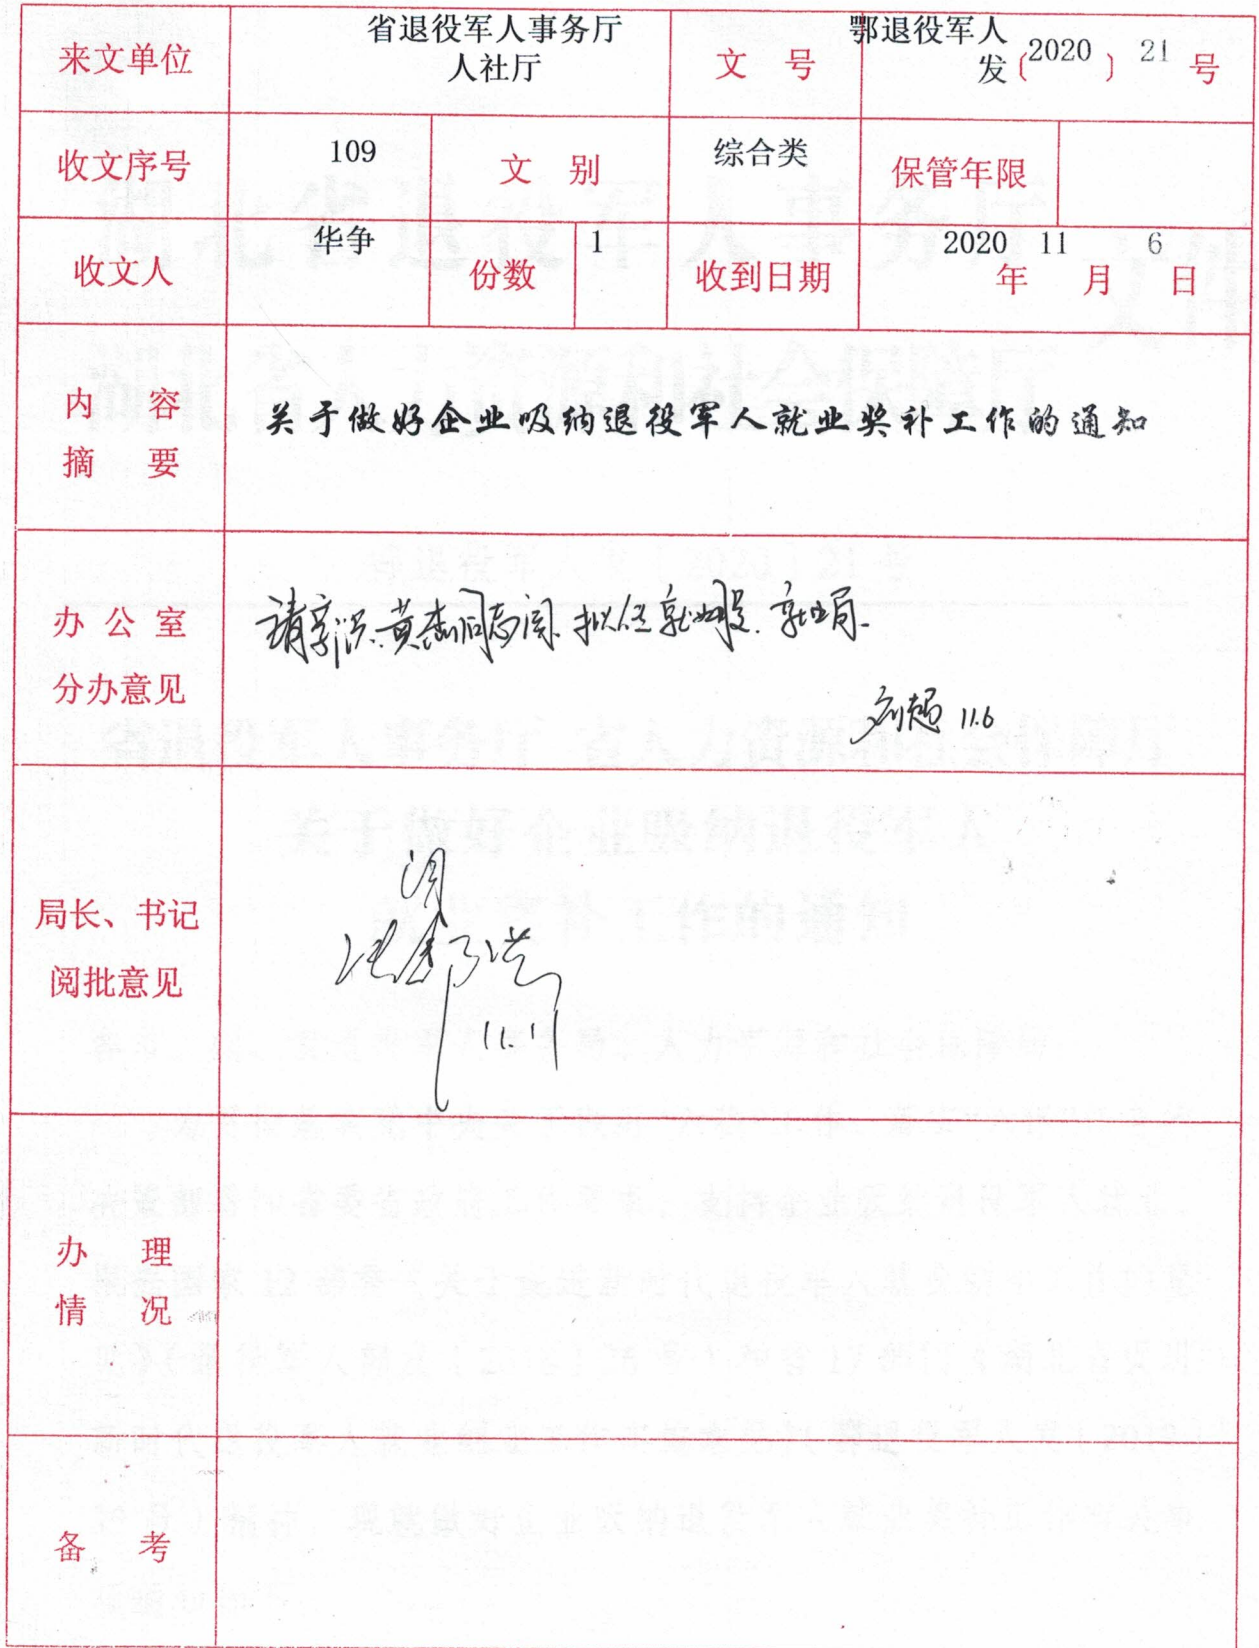 来文单位
省退役军人事务厅
人社厅
文 号
鄂退役军人
发〔2020〕21号
收文序号
109
文 别
综合类
保管年限
收文人
华争
份数
1
收到日期
2020年11月6日
内 容
摘 要
关于做好企业吸纳退役军人就业奖补工作的通知
办公室
分办意见
黄杰同志阅.拟任就业股.就业局.
刘超 11.6
局长、书记
阅批意见
阅
11.11
办 理
情 况
备 考